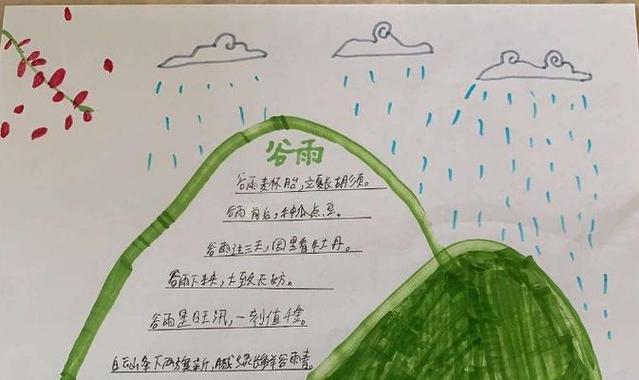 谷雨
谷雨麦怀胎,立夏长胡须。
谷雨前后,种瓜点豆。
谷雨过三天,园里看牡丹。
谷雨下秧,大致无妨。
谷雨是旺汛,一刻值千金。
谷雨春。